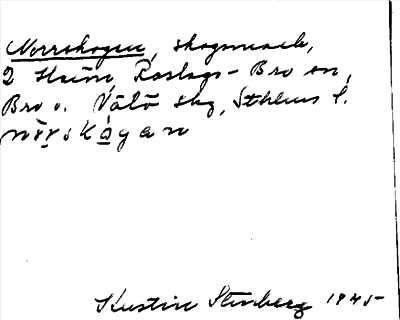 Norrskogen, skogsmark,
2 Hsin, Roslags-Bro sn,
Bro o. Vätö skg, Sthlms l.
nǫrskǫgan
Kerstin Stenberg 1945